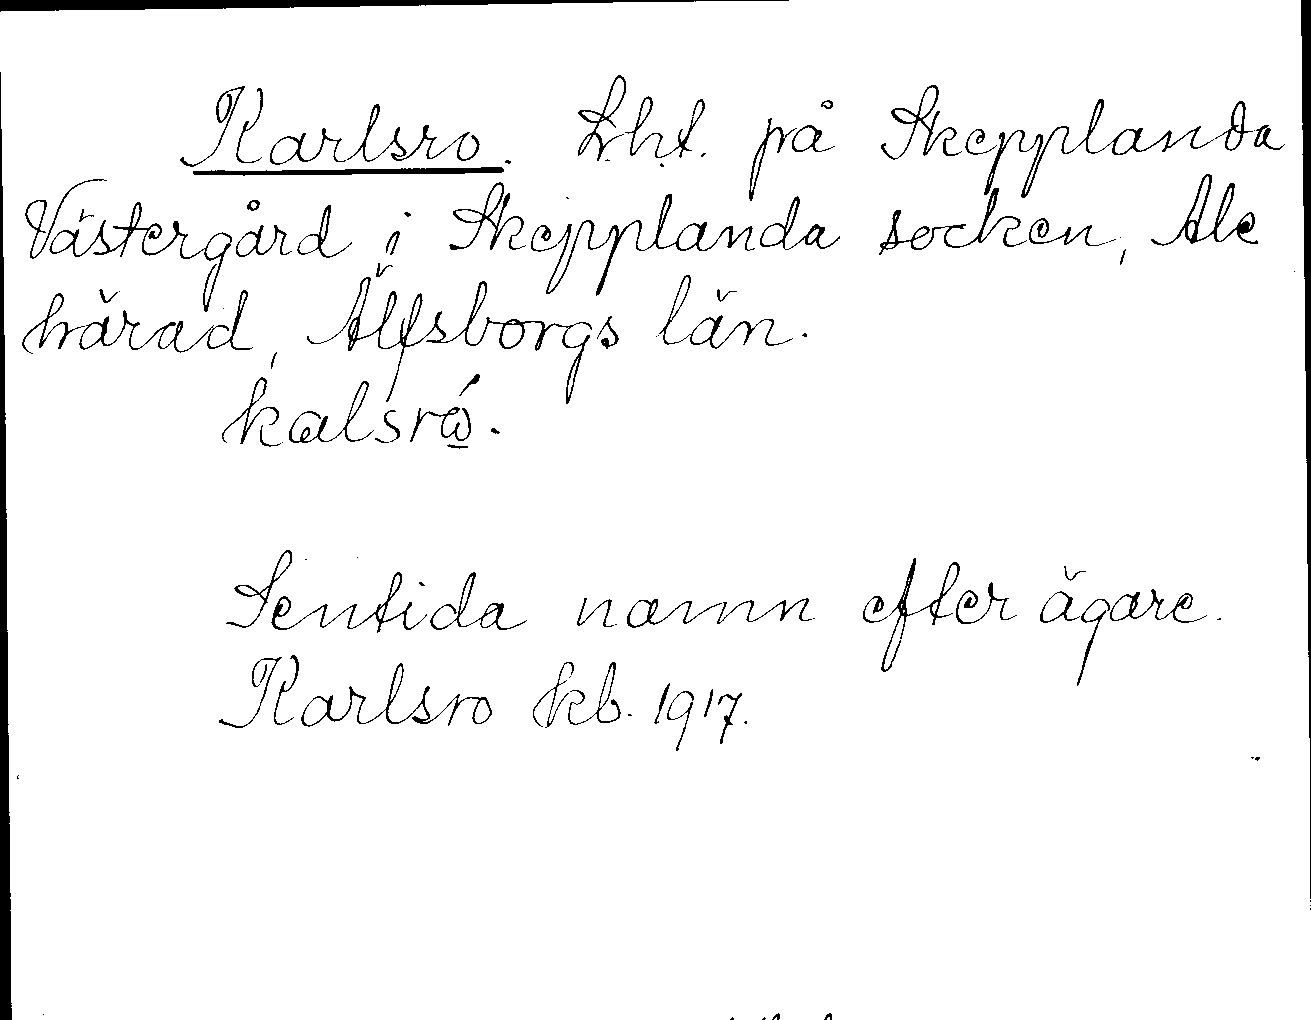 Karlsro. Lht. på Skepplanda
Västergård i Skepplanda socken, Ale
härad, Älfsborgs län.
kalsrώ̲.
Sentida namn efter ägare.
Karlsro kb. 1917.